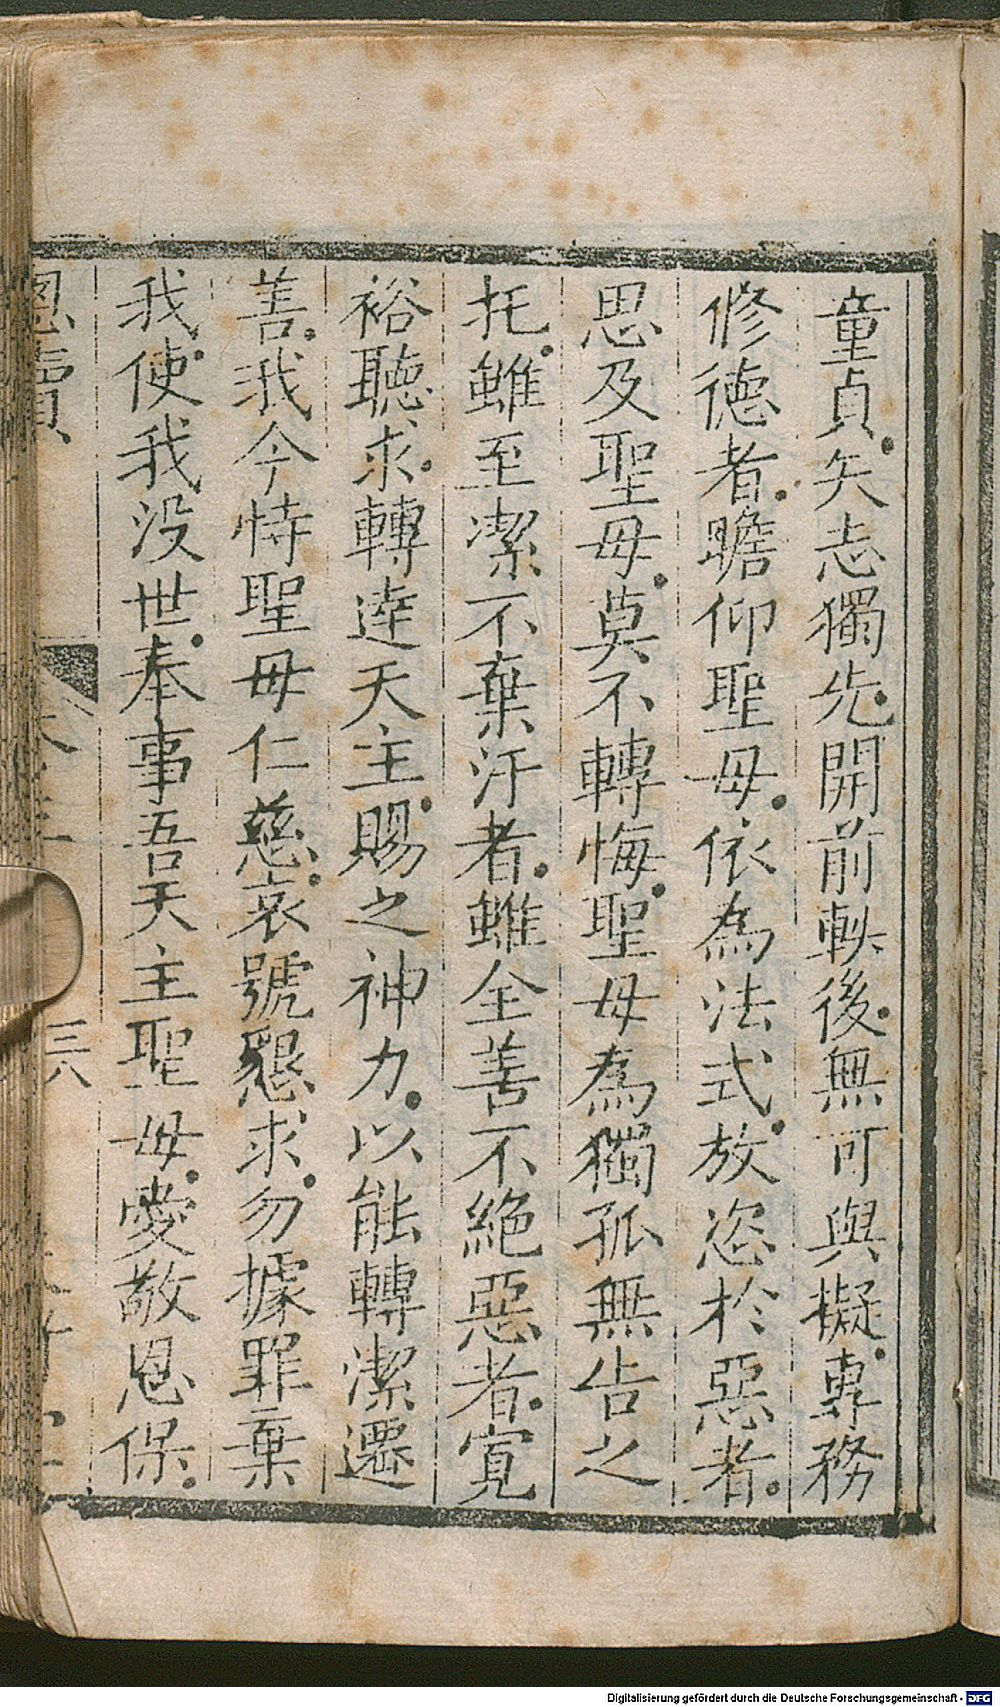 童貞。矢志獨先。開前軼後。無可與擬。專務
修德者。瞻仰聖母。依為法式。放恣於惡者。
思及聖母。莫不轉悔。聖母為獨孤無告之
托。雖至潔不棄汙者。雖全善不絕惡者。寬
裕聽求。轉達天主。賜之神力。以能轉潔遷
善。我今恃聖母仁慈。哀號懇求。勿據罪棄
我。使我沒世。奉事吾天主聖母。愛敬恩保。
三八
Digitalisierung gefördert durch die Deutsche Forschungsgemeinschaft - DFG